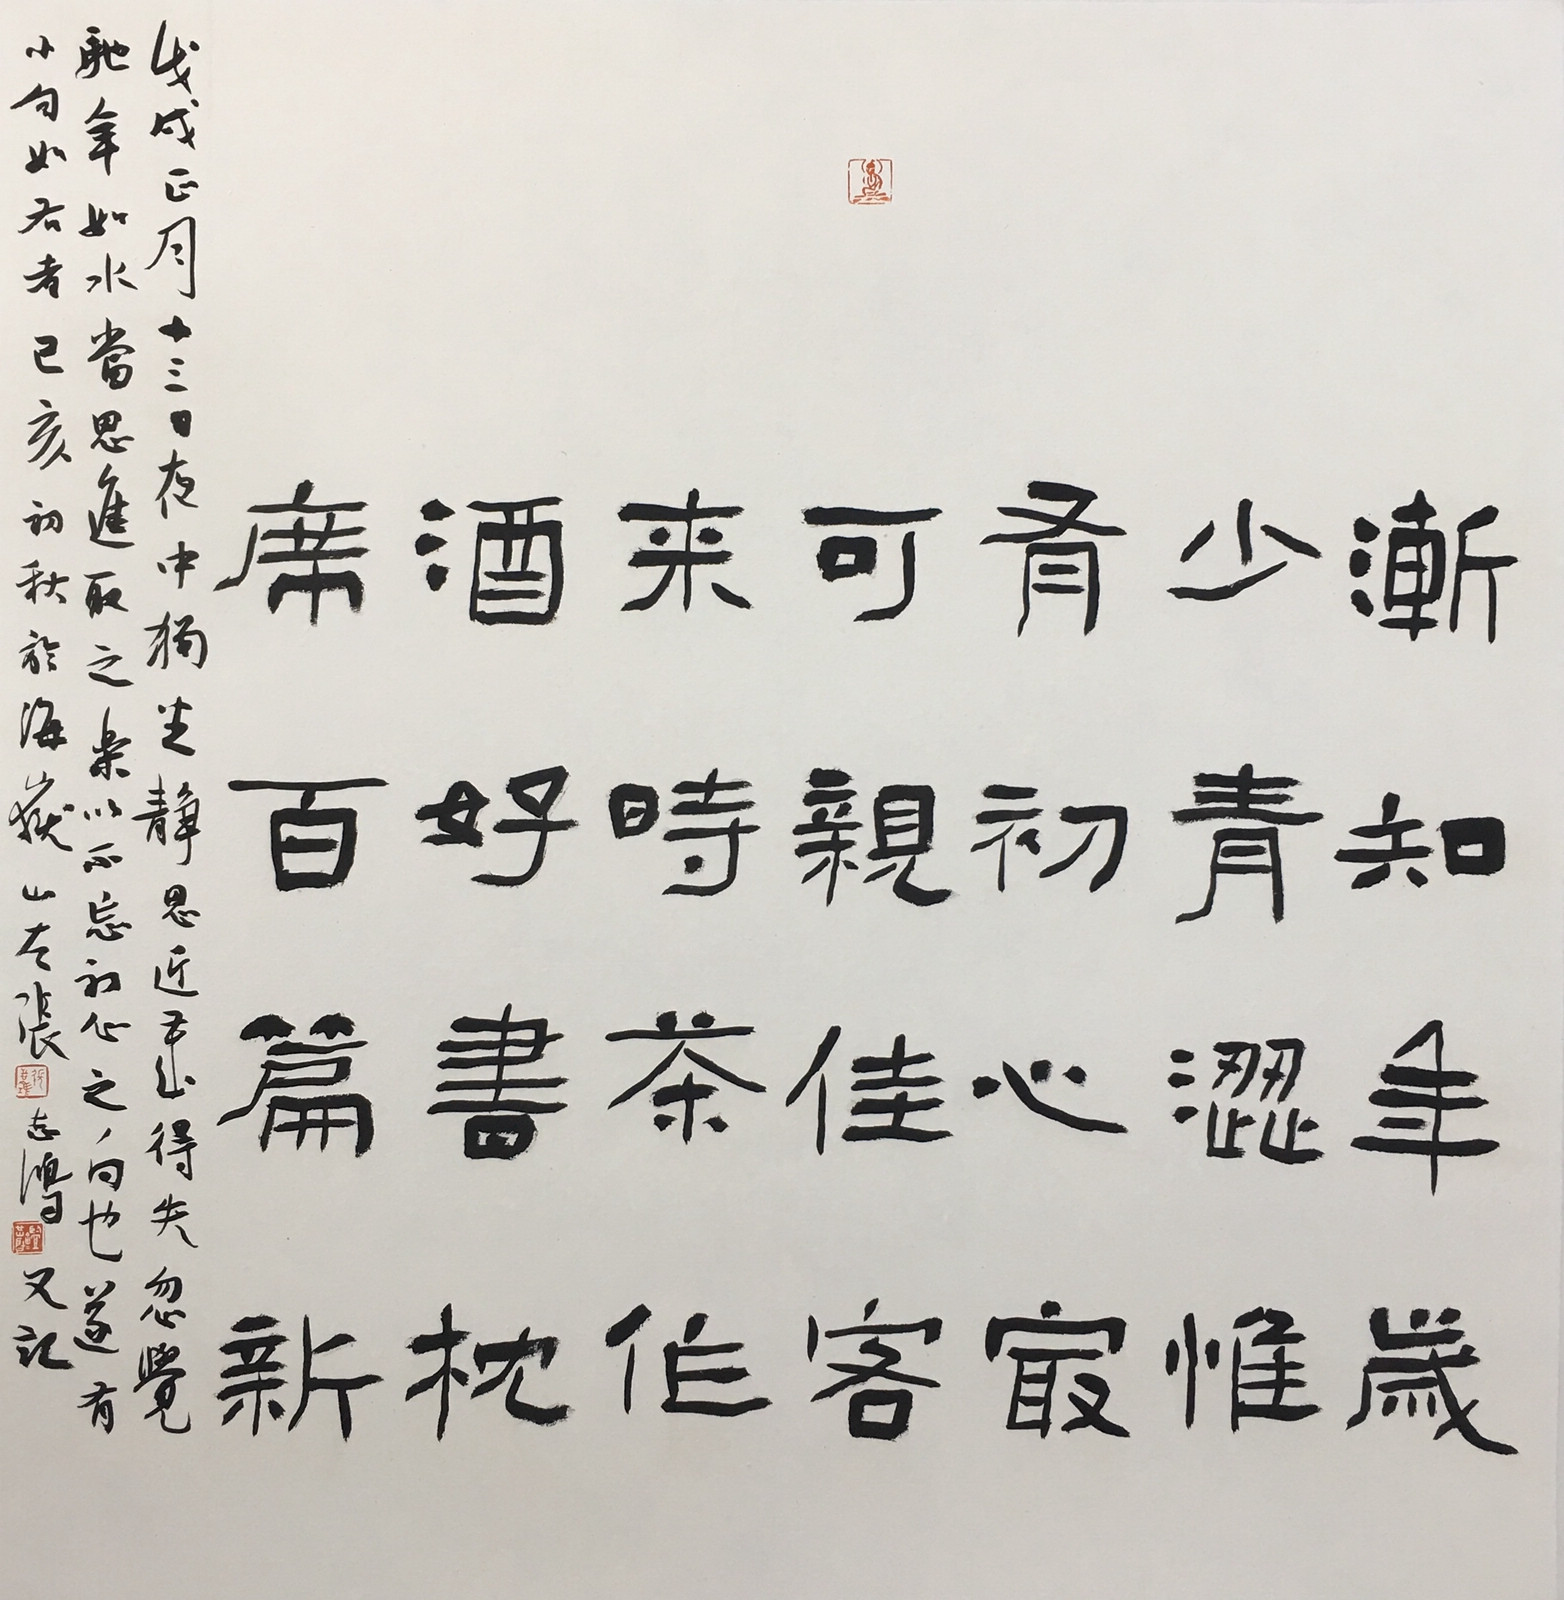 漸知年歲
少青澀惟
有初心最
可親佳客
来時茶作
酒好書枕
席百篇新
戊戌正月十三日夜中獨坐靜思近得失忽覺
馳年如水當思進取之以不忘初心之句也遂有
小句如右者己亥初秋於海嶽山左張志鴻又記